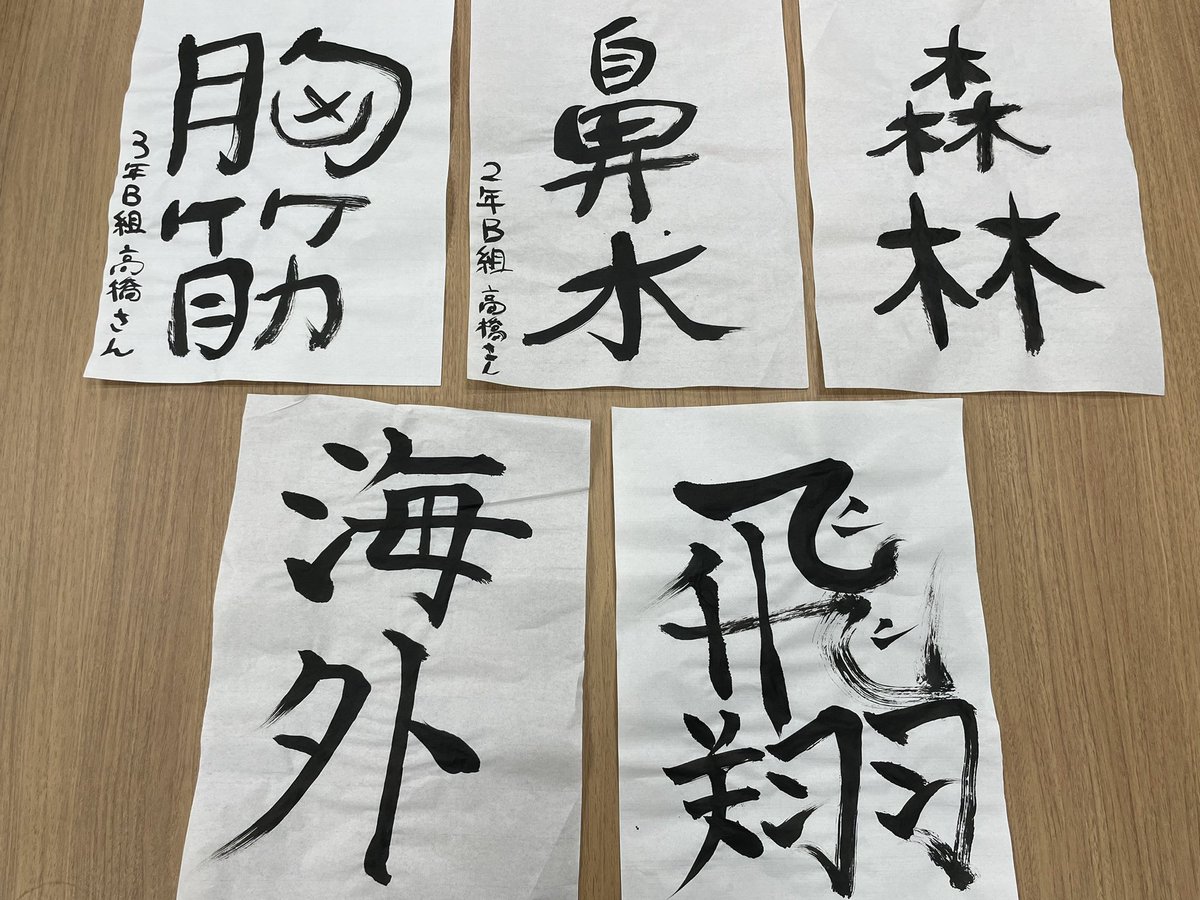 胸筋
3年B組 高橋さん
鼻水
2年B組 高橋さん
森林
海外
飛翔